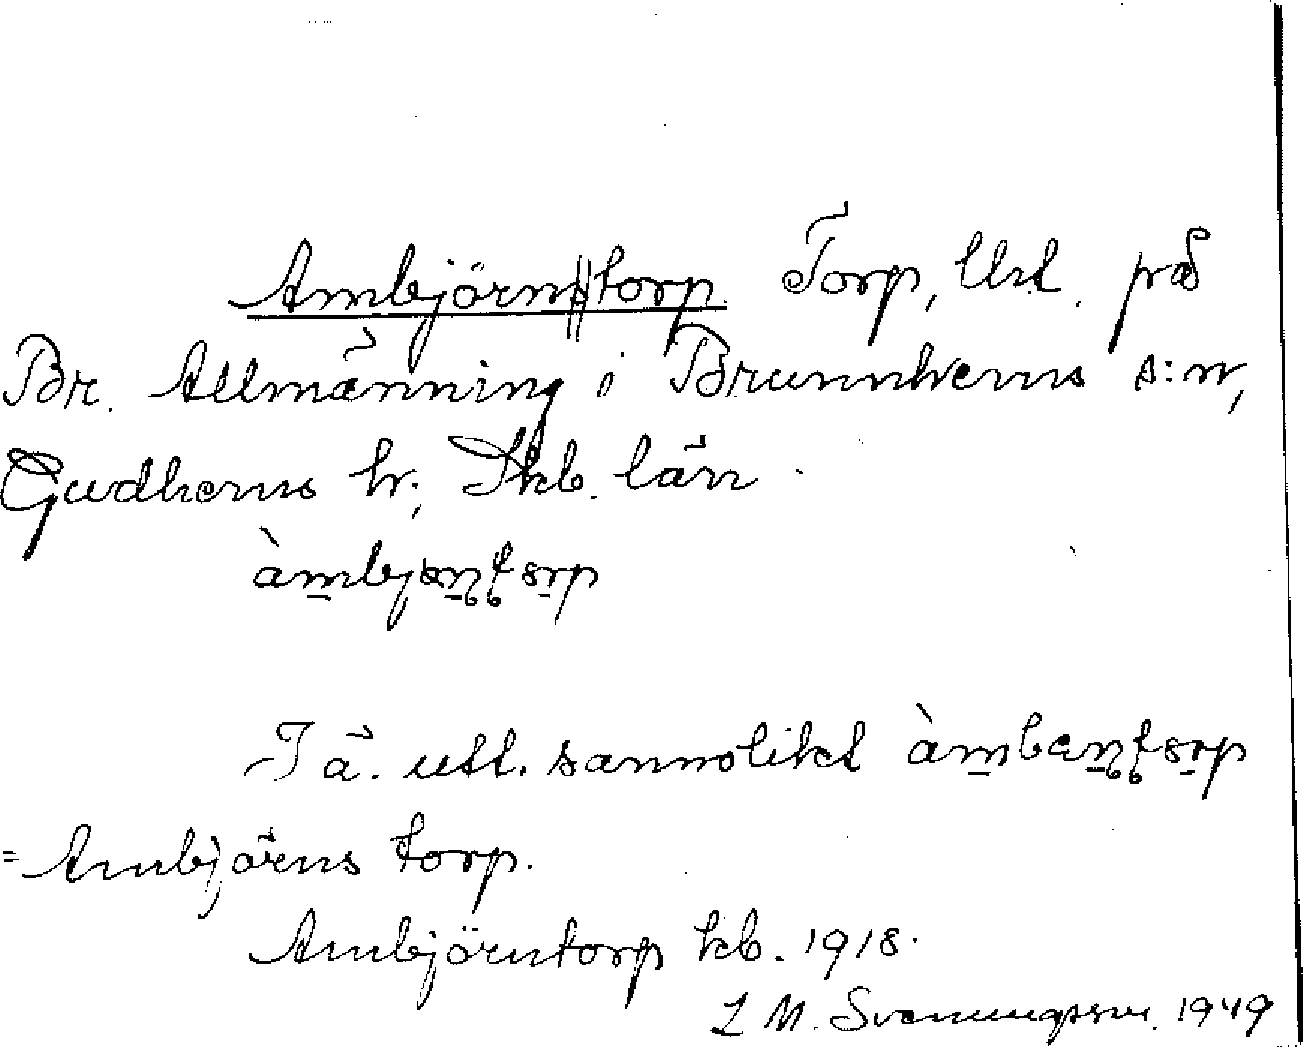 Ambjörntorp Torp, Urt. på
Br. Allmänning i Brunnhems s:n,
Gudhems hr; Skb. län.
àmbjɶṇṭɷrp
I ä. utt. sannolikt àmbɶṇṭɷrp
= Ambjörns torp.
Ambjörntorp kb. 1918.
L M. Svenungsson. 1949